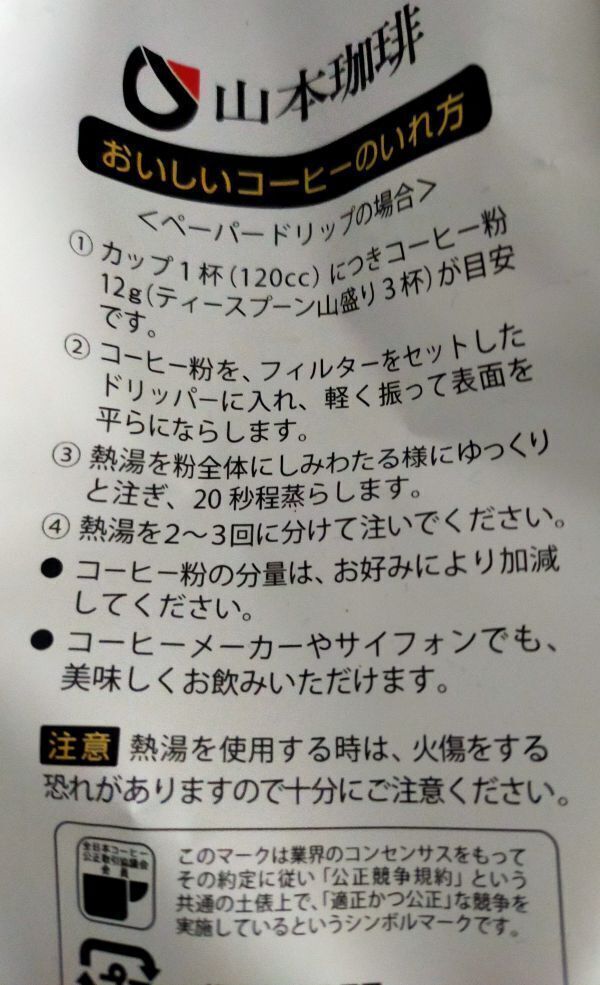 山本珈琲
おいしいコーヒーのいれ方
＜ペーパードリップの場合＞
① カップ1杯(120cc)につきコーヒー粉
12g(ティースプーン山盛り3杯)が目安
です。
② コーヒー粉を、フィルターをセットした
ドリッパーに入れ、軽く振って表面を
平らにならします。
③ 熱湯を粉全体にしみわたる様にゆっくり
と注ぎ、20秒程蒸らします。
④ 熱湯を2〜3回に分けて注いでください。
● コーヒー粉の分量は、お好みにより加減
してください。
● コーヒーメーカーやサイフォンでも、
美味しくお飲みいただけます。
注意 熱湯を使用する時は、火傷をする
恐れがありますので十分にご注意ください。
全日本コーヒー
公正取引協議会
会員
このマークは業界のコンセンサスをもって
その約定に従い「公正競争規約」という
共通の土俵上で、「適正かつ公正」な競争を
実施しているというシンボルマークです。